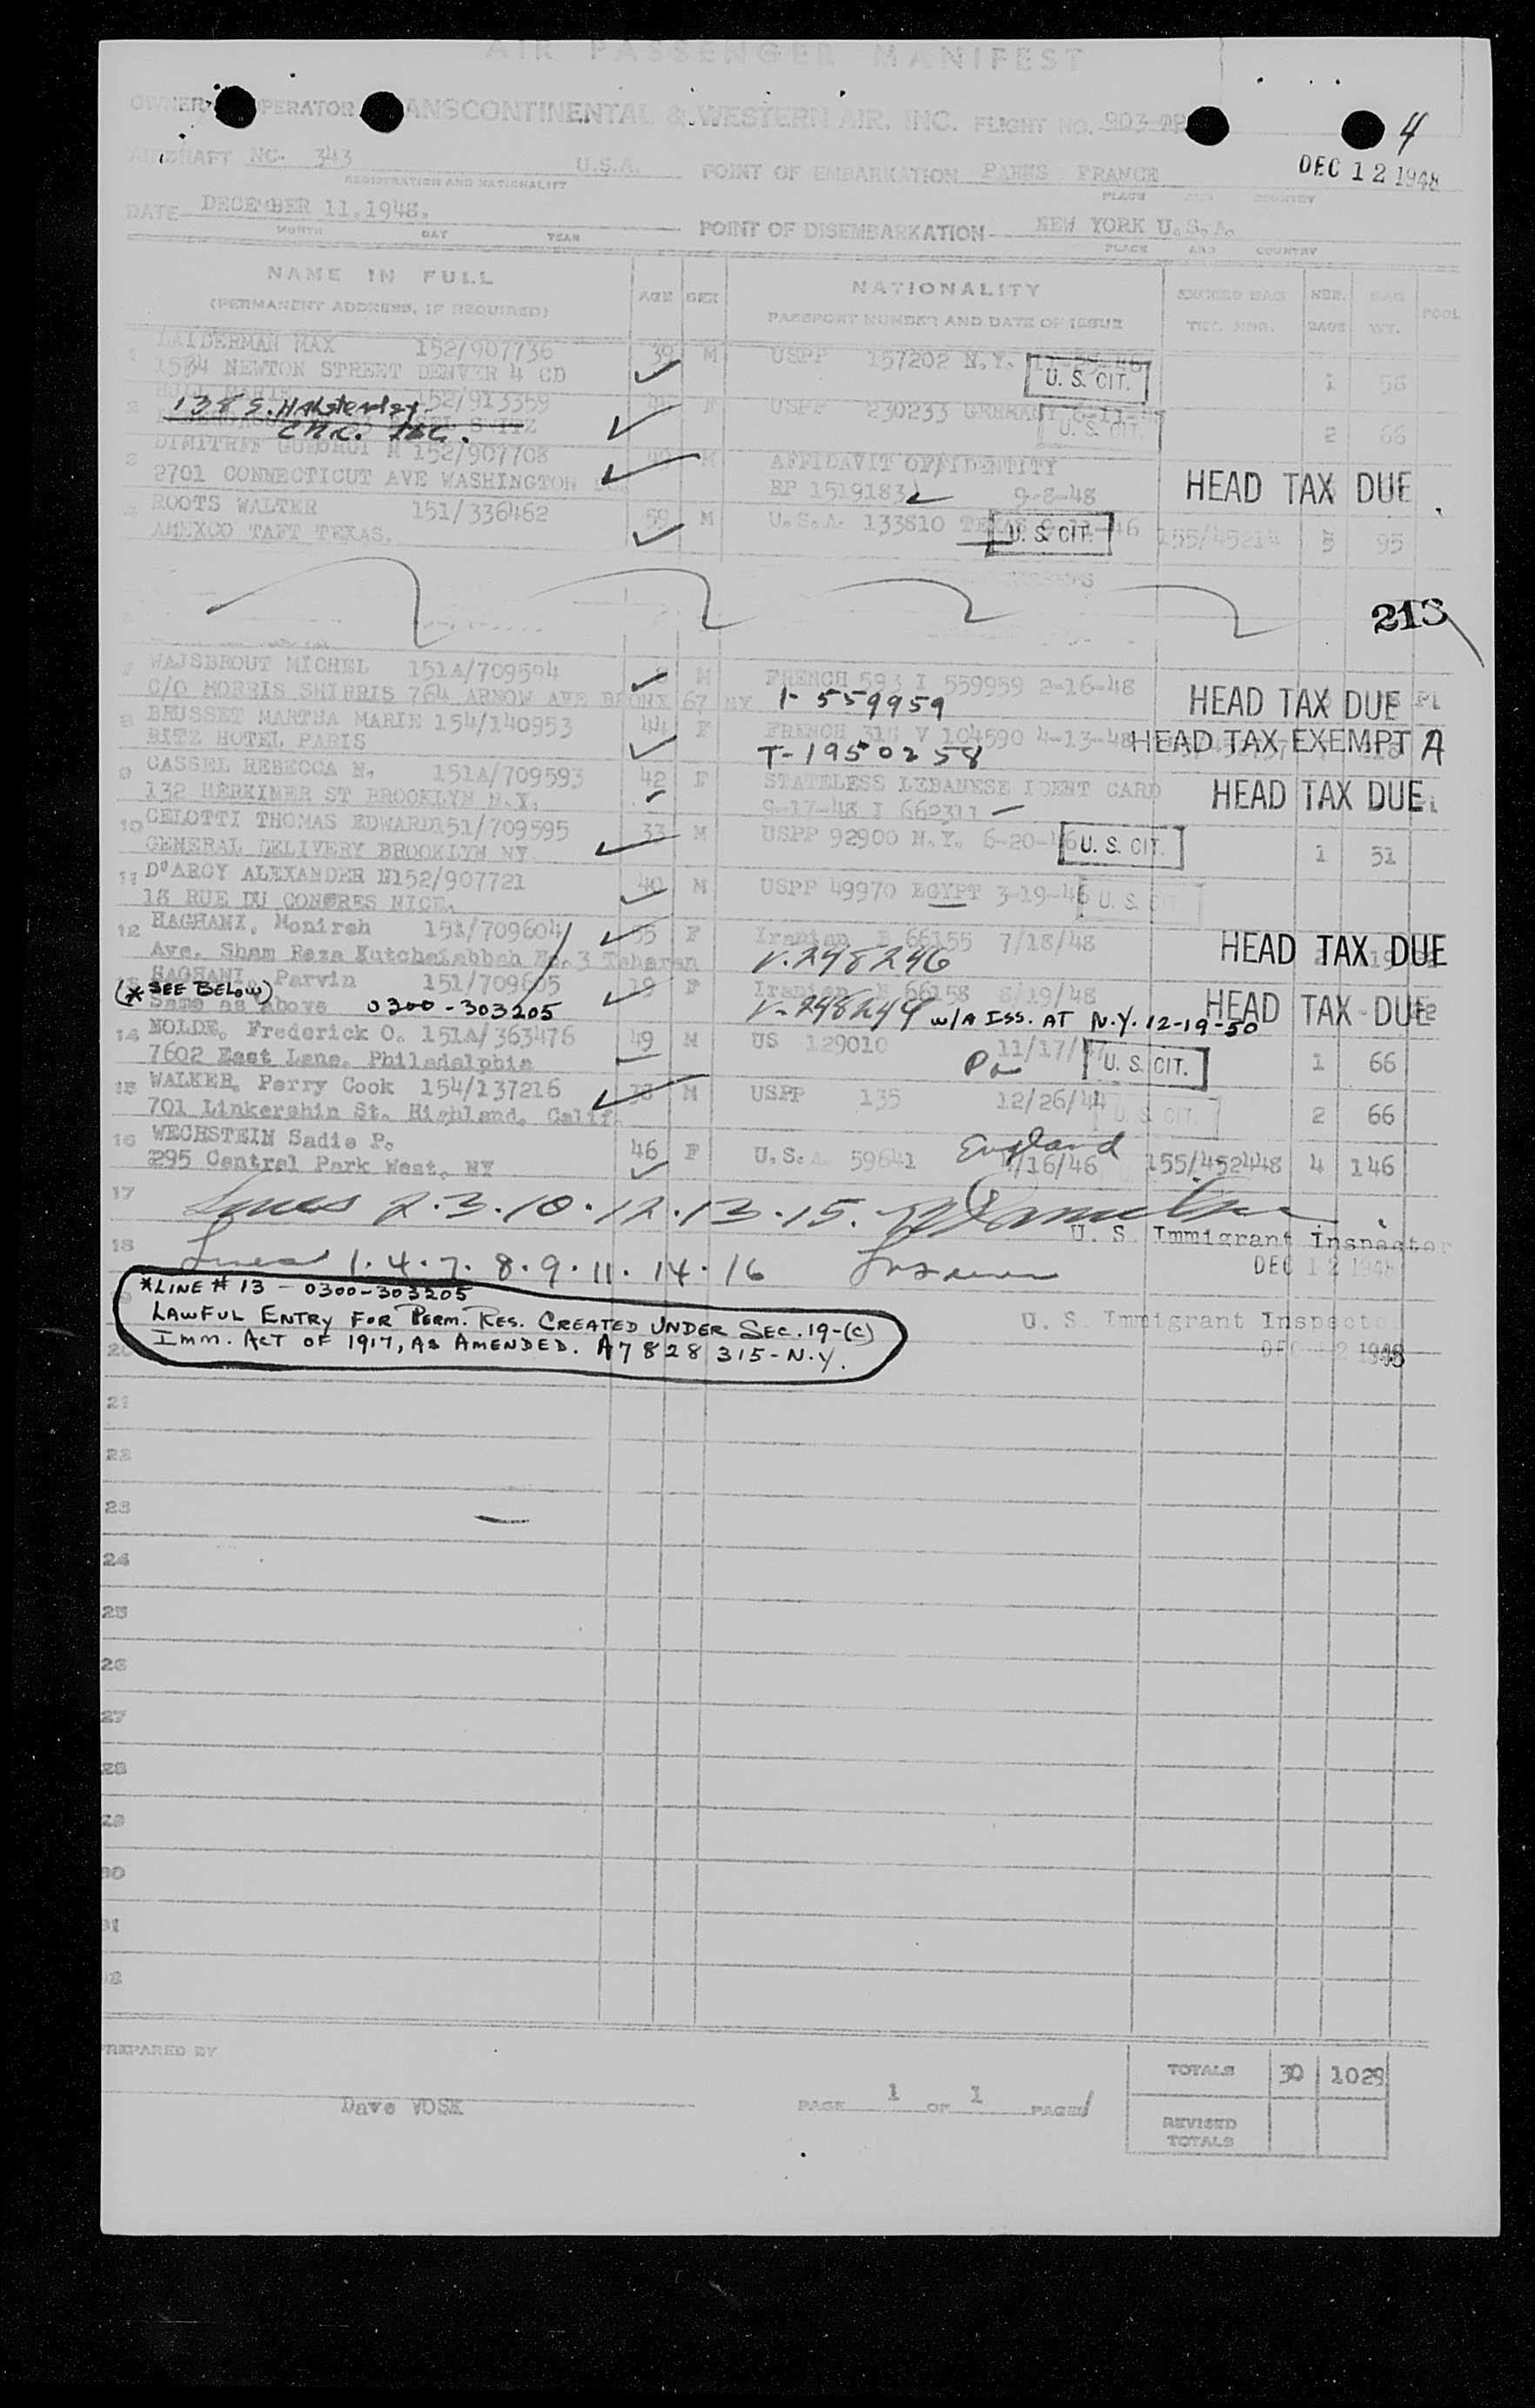 AIR PASSENGER MANIFEST
OWNER OPERATOR TRANSCONTINENTAL & WESTERN AIR, INC. FLIGHT NO. 903
4
AIRCRAFT NC- 343 U.S.A. POINT OF EMBARKATION FRANCE
DEC 12 1948
REGISTRATION AND NATIONALITY PLACE AND COUNTRY
DATE DECEMBER 11,1948. POINT OF DISEMBARKATION NEW YORK U.S.A.
MONTH DAY YEAR PLACE AND COUNTRY
NAME IN FULL AGE SEX NATIONALITY EXCESS BAG NBR. BAG POOL
(PERMANENT ADDRESS, IF REQUIRED) PASSPORT NUMBER AND DATE OF ISSUE TKT. NBR. BAGS WT.
1 LAIDERMAN MAX 152/907736 39 M USPP 157202 N.Y.
1584 NEWTON STREET DENVER 4 CO U. S. CIT. 1
2 152/913359 F USPP 230233 GERMANY
138 S. U. S. CIT. 2 66
3 152/907708 M AFFIDAVIT OF IDENTITY
2701 CONNECTICUT AVE WASHINGTON RP 1519183 9-8-48 HEAD TAX DUE
4 ROOTS WALTER 151/336462 59 M U.S.A. 133810 TEXAS
AMEXCO TAFT TEXAS. U. S. CIT. 155/45214 95
213
7 WAJSBROUT MICHEL 151A/709594 8 M FRENCH 593 I 559959 2-16-48
C/O MORRIS SHIRRIS 764 ARNOW AVE BRONX 67 NY I-559959 HEAD TAX DUE
8 BRUSSET MARTHA MARIE 154/140953 44 F FRENCH 318 V 104590 4-13-48
RITZ HOTEL PARIS T-1950258 HEAD TAX EXEMPT A
9 CASSEL REBECCA N. 151A/709593 42 F STATELESS LEBANESE IDENT CARD
132 HERKIMER ST BROOKLYN N.Y. 9-17-48 I 662311 HEAD TAX DUE
10 CELOTTI THOMAS EDWARD 151/709595 33 M USPP 92900 N.Y. 6-20-46 U. S. CIT.
GENERAL DELIVERY BROOKLYN NY. 1 51
11 D'ARCY ALEXANDER N 152/907721 40 M USPP 49970 EGYPT 3-19-46 U. S. CIT.
18 RUE DU CONGRES NICE.
12 HAGHANI, Monireh 151/709604 35 F Iranian E 66155 7/18/48
Ave. Sham Reza Kutchaiabbah No. 3 Teheran V-248246 HEAD TAX DUE
13 HAGHANI, Parvin 151/709605 19 F Iranian E 66158 8/19/48
(* SEE BELOW) Same as above 0300-303205 V-248249 W/A ISS. AT N.Y. 12-19-50 HEAD TAX DUE
14 NOLDE, Frederick O. 151A/363476 49 M US 129010 11/17/47
7602 East Lane, Philadelphia Pa U. S. CIT. 1 66
15 WALKER, Perry Cook 154/137216 38 M USPP 135 12/26/44
701 Linkershin St. Highland, Calif. U. S. CIT. 2 66
16 WECHSTEIN Sadie P. 46 F U.S.A. 59641 England
295 Central Park West, NY /16/46 155/452448 4 146
17 Lines 2.3.10.12.13.15.
U. S. Immigrant Inspector
18 Lines 1.4.7.8.9.11.14.16
DEC 12 1948
*LINE # 13 - 0300-303205
LAWFUL ENTRY FOR PERM. RES. CREATED UNDER SEC. 19-(C)
U. S. Immigrant Inspector
20 IMM. ACT OF 1917, AS AMENDED. A7828315-N.Y.
DEC 12 1948
21
22
23
24
25
26
27
28
29
30
31
32
PREPARED BY
Dave VOSK
PAGE 1 OF 1 PAGES
TOTALS 30 1029
REVISED
TOTALS